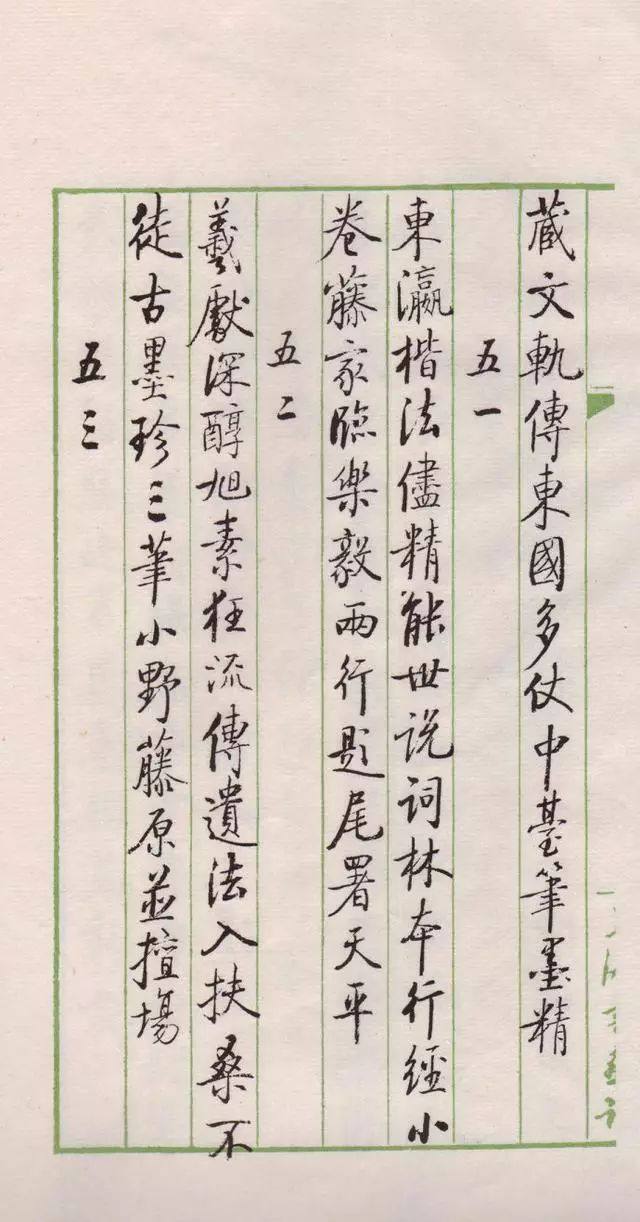 藏文軌傳東國多仗中臺筆墨精
五一
東瀛楷法儘精能世说詞林本行經小
卷藤家臨樂毅兩行題尾署天平
五二
羲獻深醇旭素狂流傳遺法入扶桑不
徒古墨珍三筆小野藤原並擅場
五三